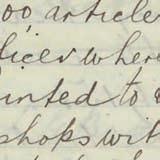 00 articles
lices where
inted to
shops wit